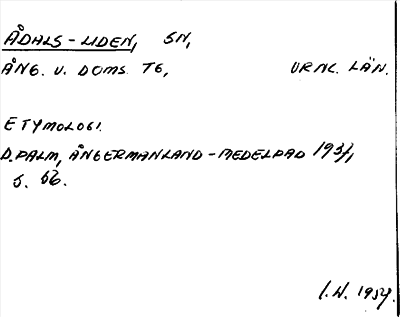 ÅDALS-LIDEN, SN,
ÅNG. V. DOMS. TG, VRNL. LÄN.
ETYMOLOGI.
D. PALM, ÅNGERMANLAND-MEDELPAD 1931,
S. 56.
I.W. 1957.